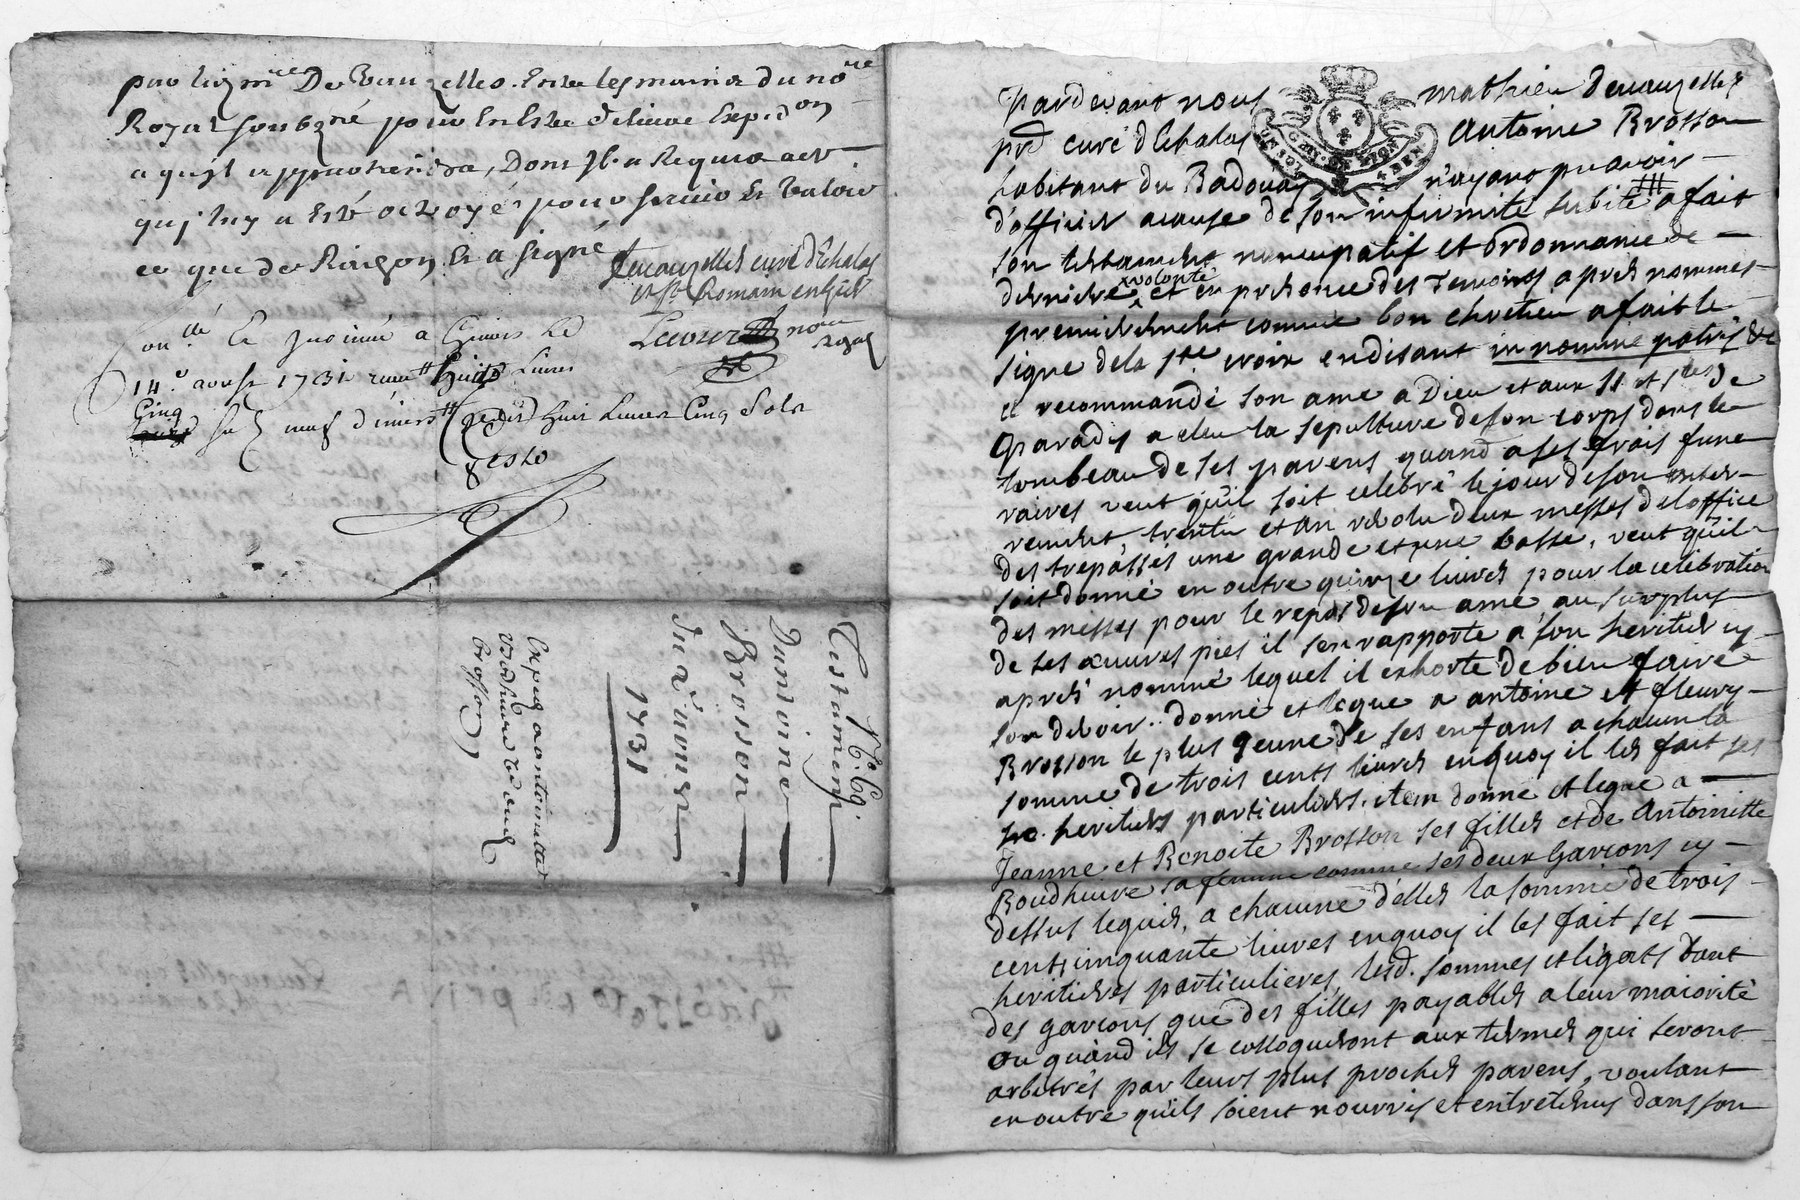 par ledit mre Devauzelles. Entre les mains du nore
Royal soubzné pour En Estre delivré Expedon
a qu'il appartiendra, Dont Il a Requis acte
quj luy a Esté octroyé pour servir Et valoir
ce que de Raison Et a signé Devauzelles curé d'Echalas
et St Romain en Gier
nore
Royal
Con.lé Et Insinué a Givors Le
14e aoust 1731 receu huit Livres
Cinq sols neuf deniers huit Livres Cinq Sols
Testament
Dantoine
Brosson
Du aoust
1731
Exped a antoinette
Brosson
Pardevant nous Mathieu Devauzelles
prd curé d'Echalas Antoine Brosson
habitant du Badouay n'ayant pu avoir
d'officier a cause de son infirmité subite a fait
son testament nuncupatif et ordonnance de
derniere volonté et en presence des Temoins apres nommes
premierement comme bon chretien a fait le
signe de la Ste croix en disant in nomine patris &c
a recommandé son ame a Dieu et aux SS et Stes de
Paradis a eleu la sepulture de son corps dans le
tombeau de ses parens quand a ses frais fune
raires veut qu'il soit celebré le jour de son enter-
rement, trentin et an revolu deux messes de l'office
des trepasses une grande et une basse, veut qu'il
soit donné en outre quinze livres pour la celebration
des messes pour le repos de son ame au surplus
de ses œuvres pies il s'en rapporte a son heritier cy
apres nommé lequel il exhorte de bien faire
son devoir.. donne et legue a antoine et fleury
Brosson le plus jeune de ses enfans a chacun la
somme de trois cents livres en quoy il les fait ses
heritiers particuliers. item donne et legue a
Jeanne et Benoite Brosson ses filles et de Antoinette
Boudhuire sa femme comme ses deux Garcons cy
dessus legués, a chacune d'elles la somme de trois
cents cinquante livres en quoy il les fait ses
heritieres particulieres, lesd. sommes et legats tant
des garcons que des filles payables a leur maiorité
ou quand ils se colloqueront aux termes qui seront
arbitrés par leurs plus proches parens, voulant
en outre qu'ils soient nourris et entretenus dans son